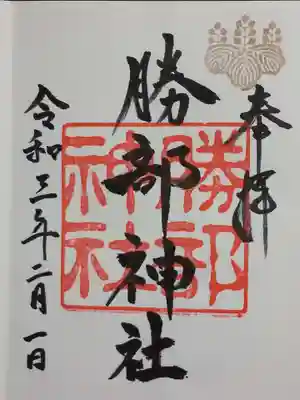 奉拝
勝部神社
勝部神社
令和三年二月一日